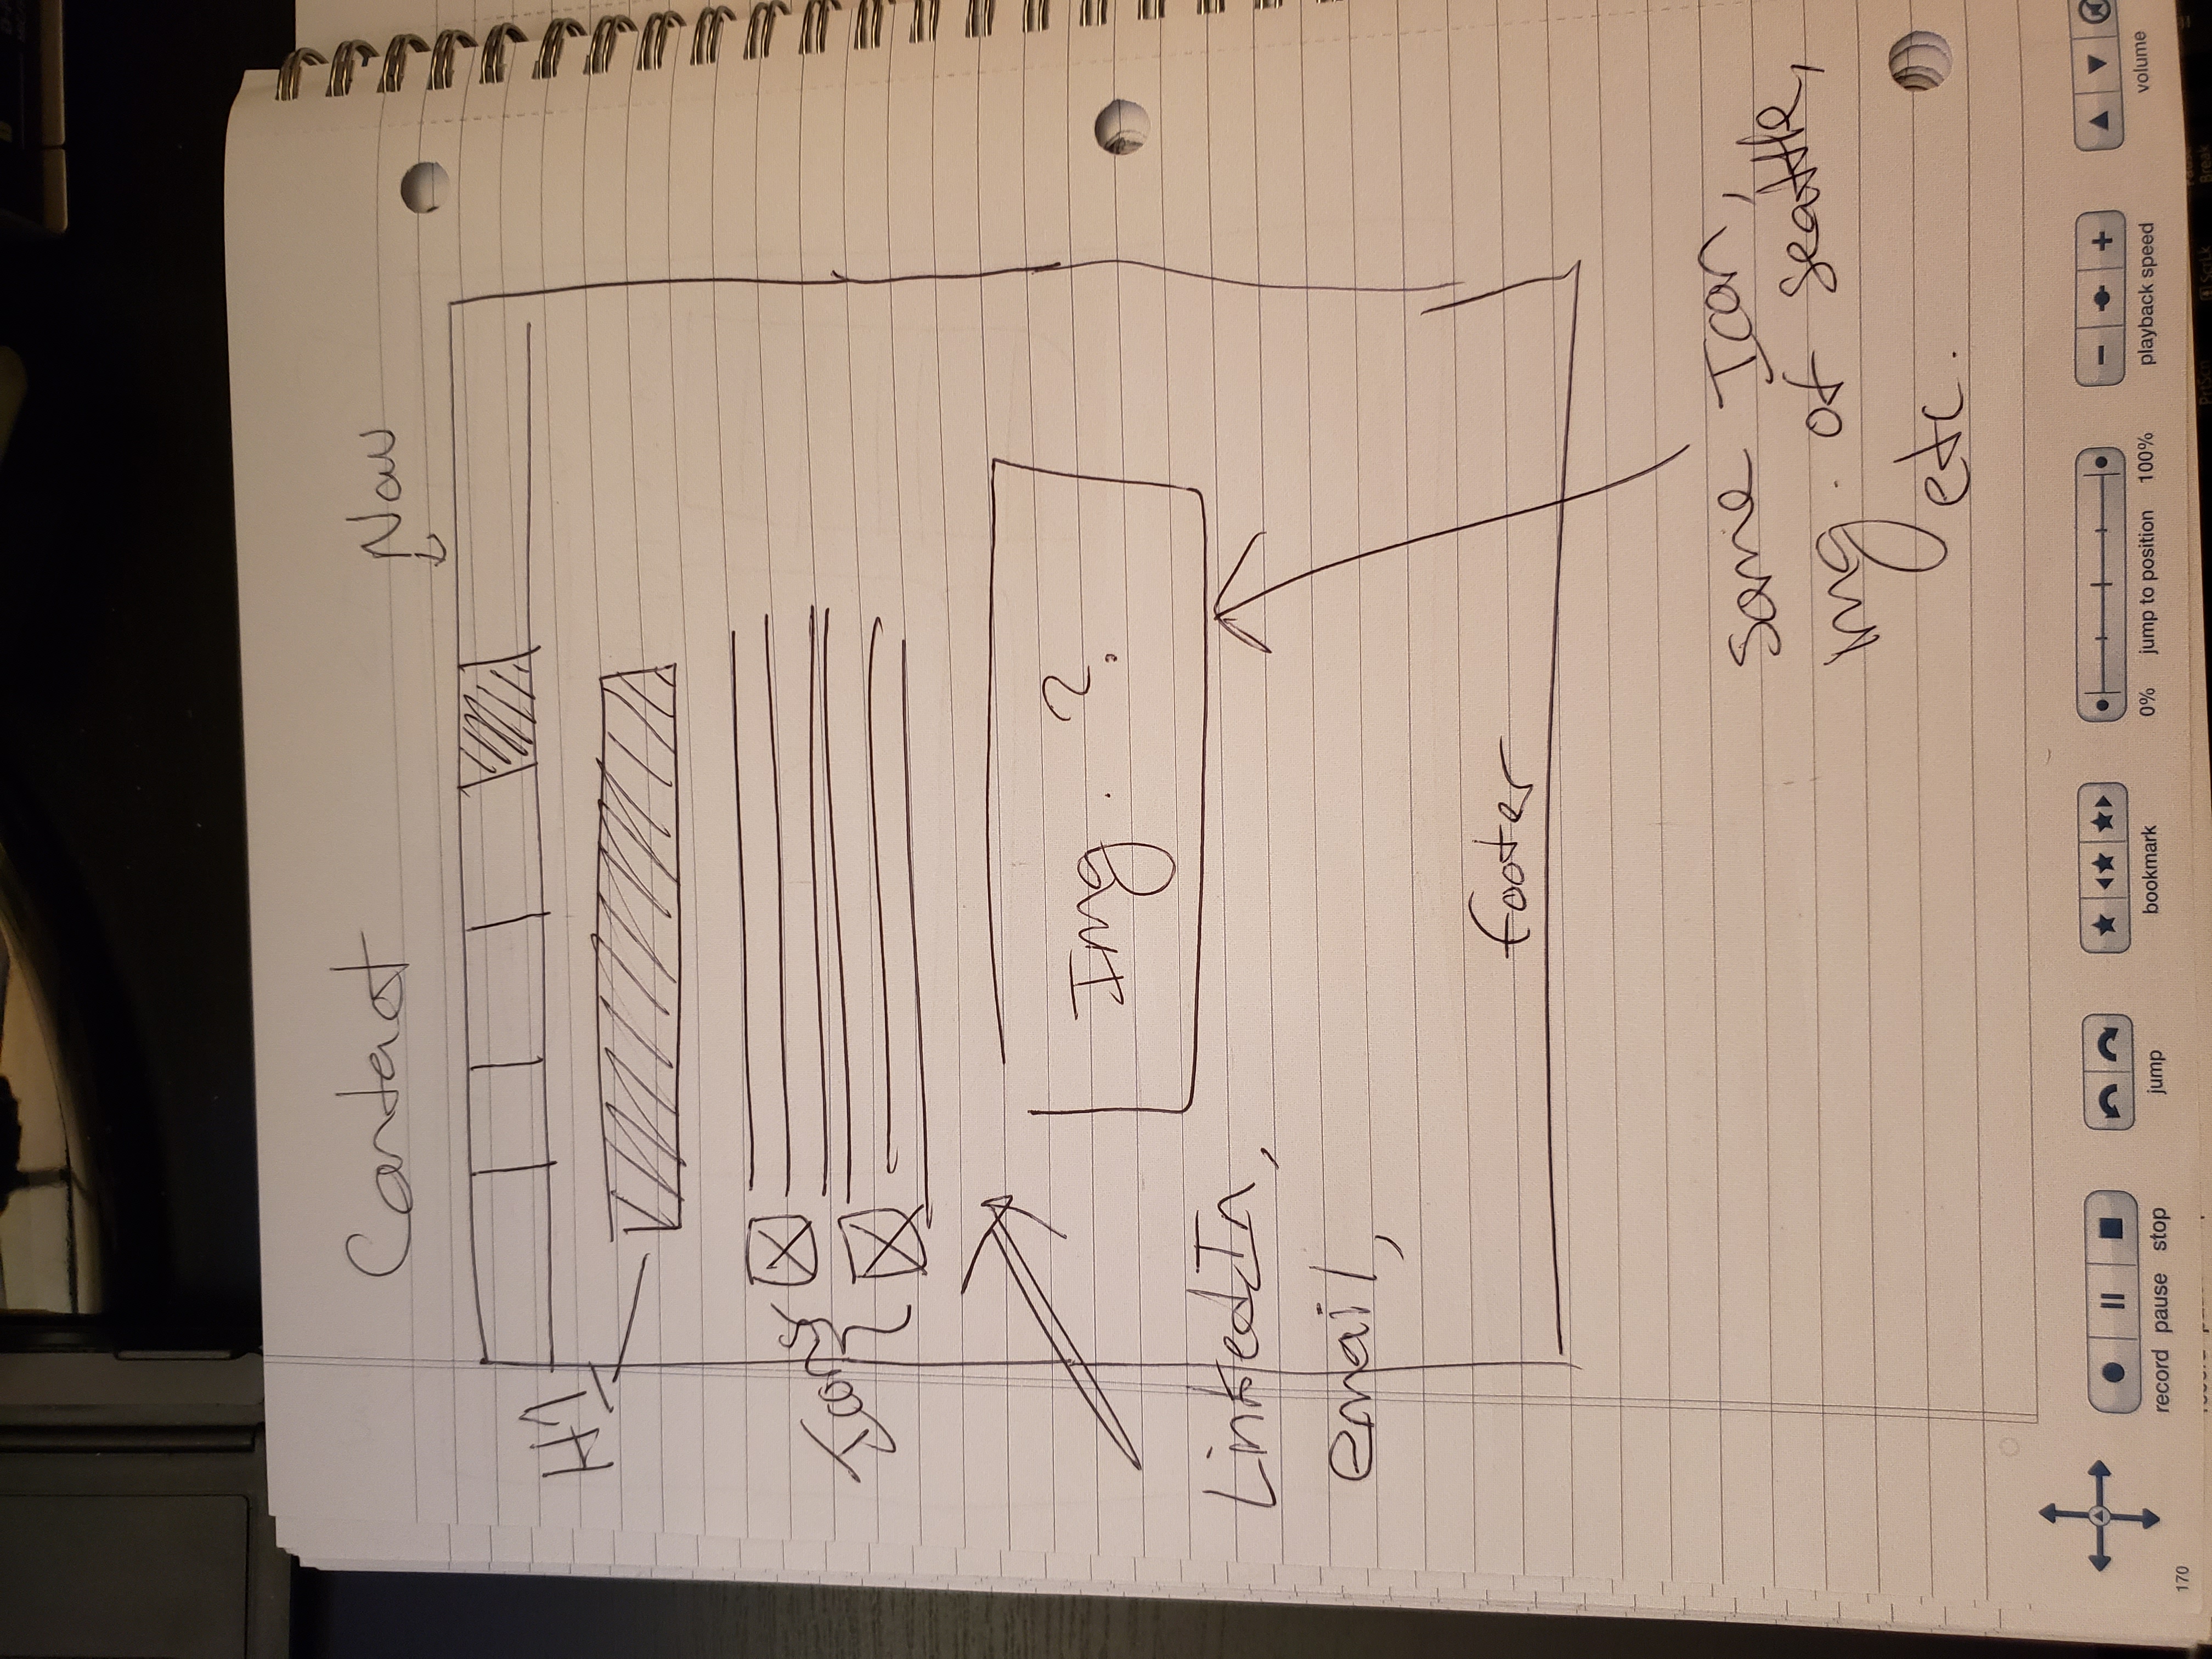 Contact
Nav
H1
Icons
Img. ?
LinkedIn,
email,
footer
Some Icon,
img. of seattle,
etc.
record pause stop
jump
bookmark
0% jump to position 100%
playback speed
volume
170
PrtScn
ScrLk
Break